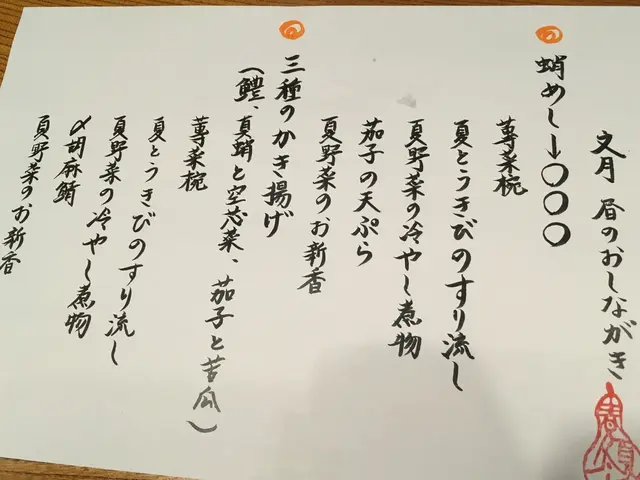 文月 昼のおしながき
蛸めし→〇〇〇
蓴菜椀
夏とうきびのすり流し
夏野菜の冷やし煮物
茄子の天ぷら
夏野菜のお新香
三種のかき揚げ
(鱧、真蛸と空芯菜、茄子と苦瓜)
蓴菜椀
夏とうきびのすり流し
夏野菜の冷やし煮物
〆胡麻鯖
夏野菜のお新香